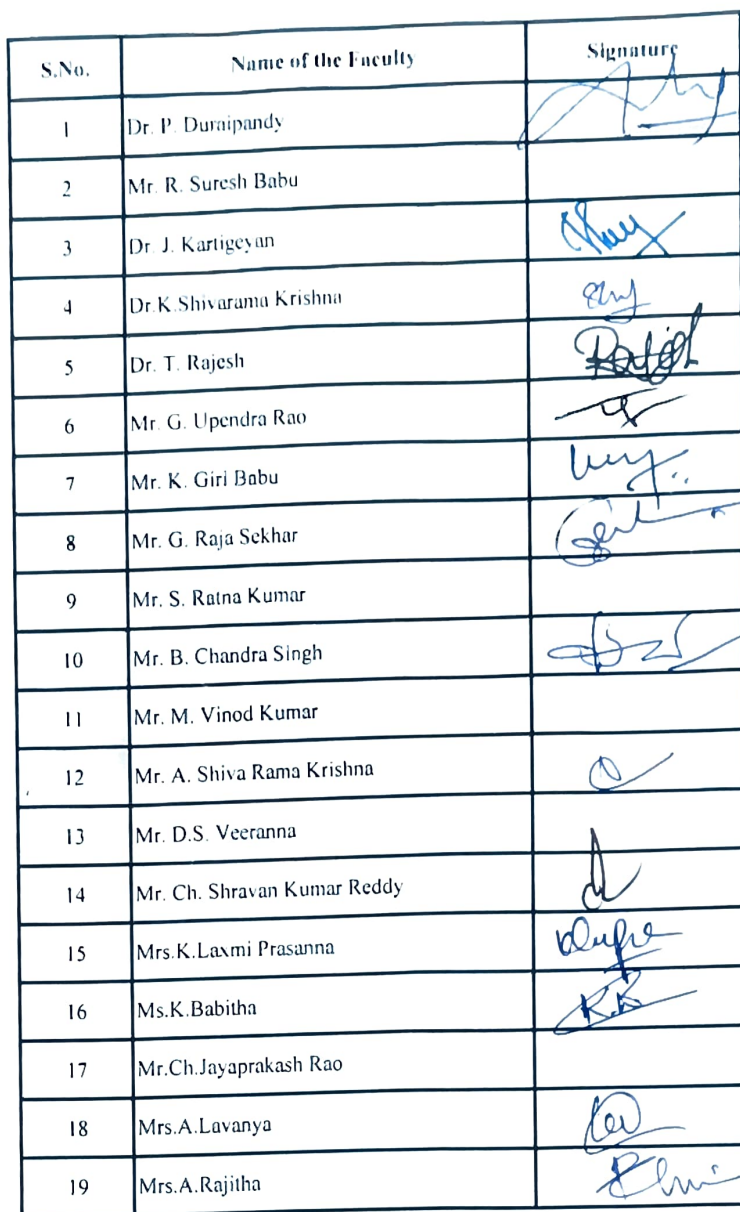 S.No. Name of the Faculty Signature
1 Dr. P. Duraipandy
2 Mr. R. Suresh Babu
3 Dr. J. Kartigeyan
4 Dr.K.Shivarama Krishna
5 Dr. T. Rajesh
6 Mr. G. Upendra Rao
7 Mr. K. Giri Babu
8 Mr. G. Raja Sekhar
9 Mr. S. Ratna Kumar
10 Mr. B. Chandra Singh
11 Mr. M. Vinod Kumar
12 Mr. A. Shiva Rama Krishna
13 Mr. D.S. Veeranna
14 Mr. Ch. Shravan Kumar Reddy
15 Mrs.K.Laxmi Prasanna
16 Ms.K.Babitha K.B
17 Mr.Ch.Jayaprakash Rao
18 Mrs.A.Lavanya
19 Mrs.A.Rajitha